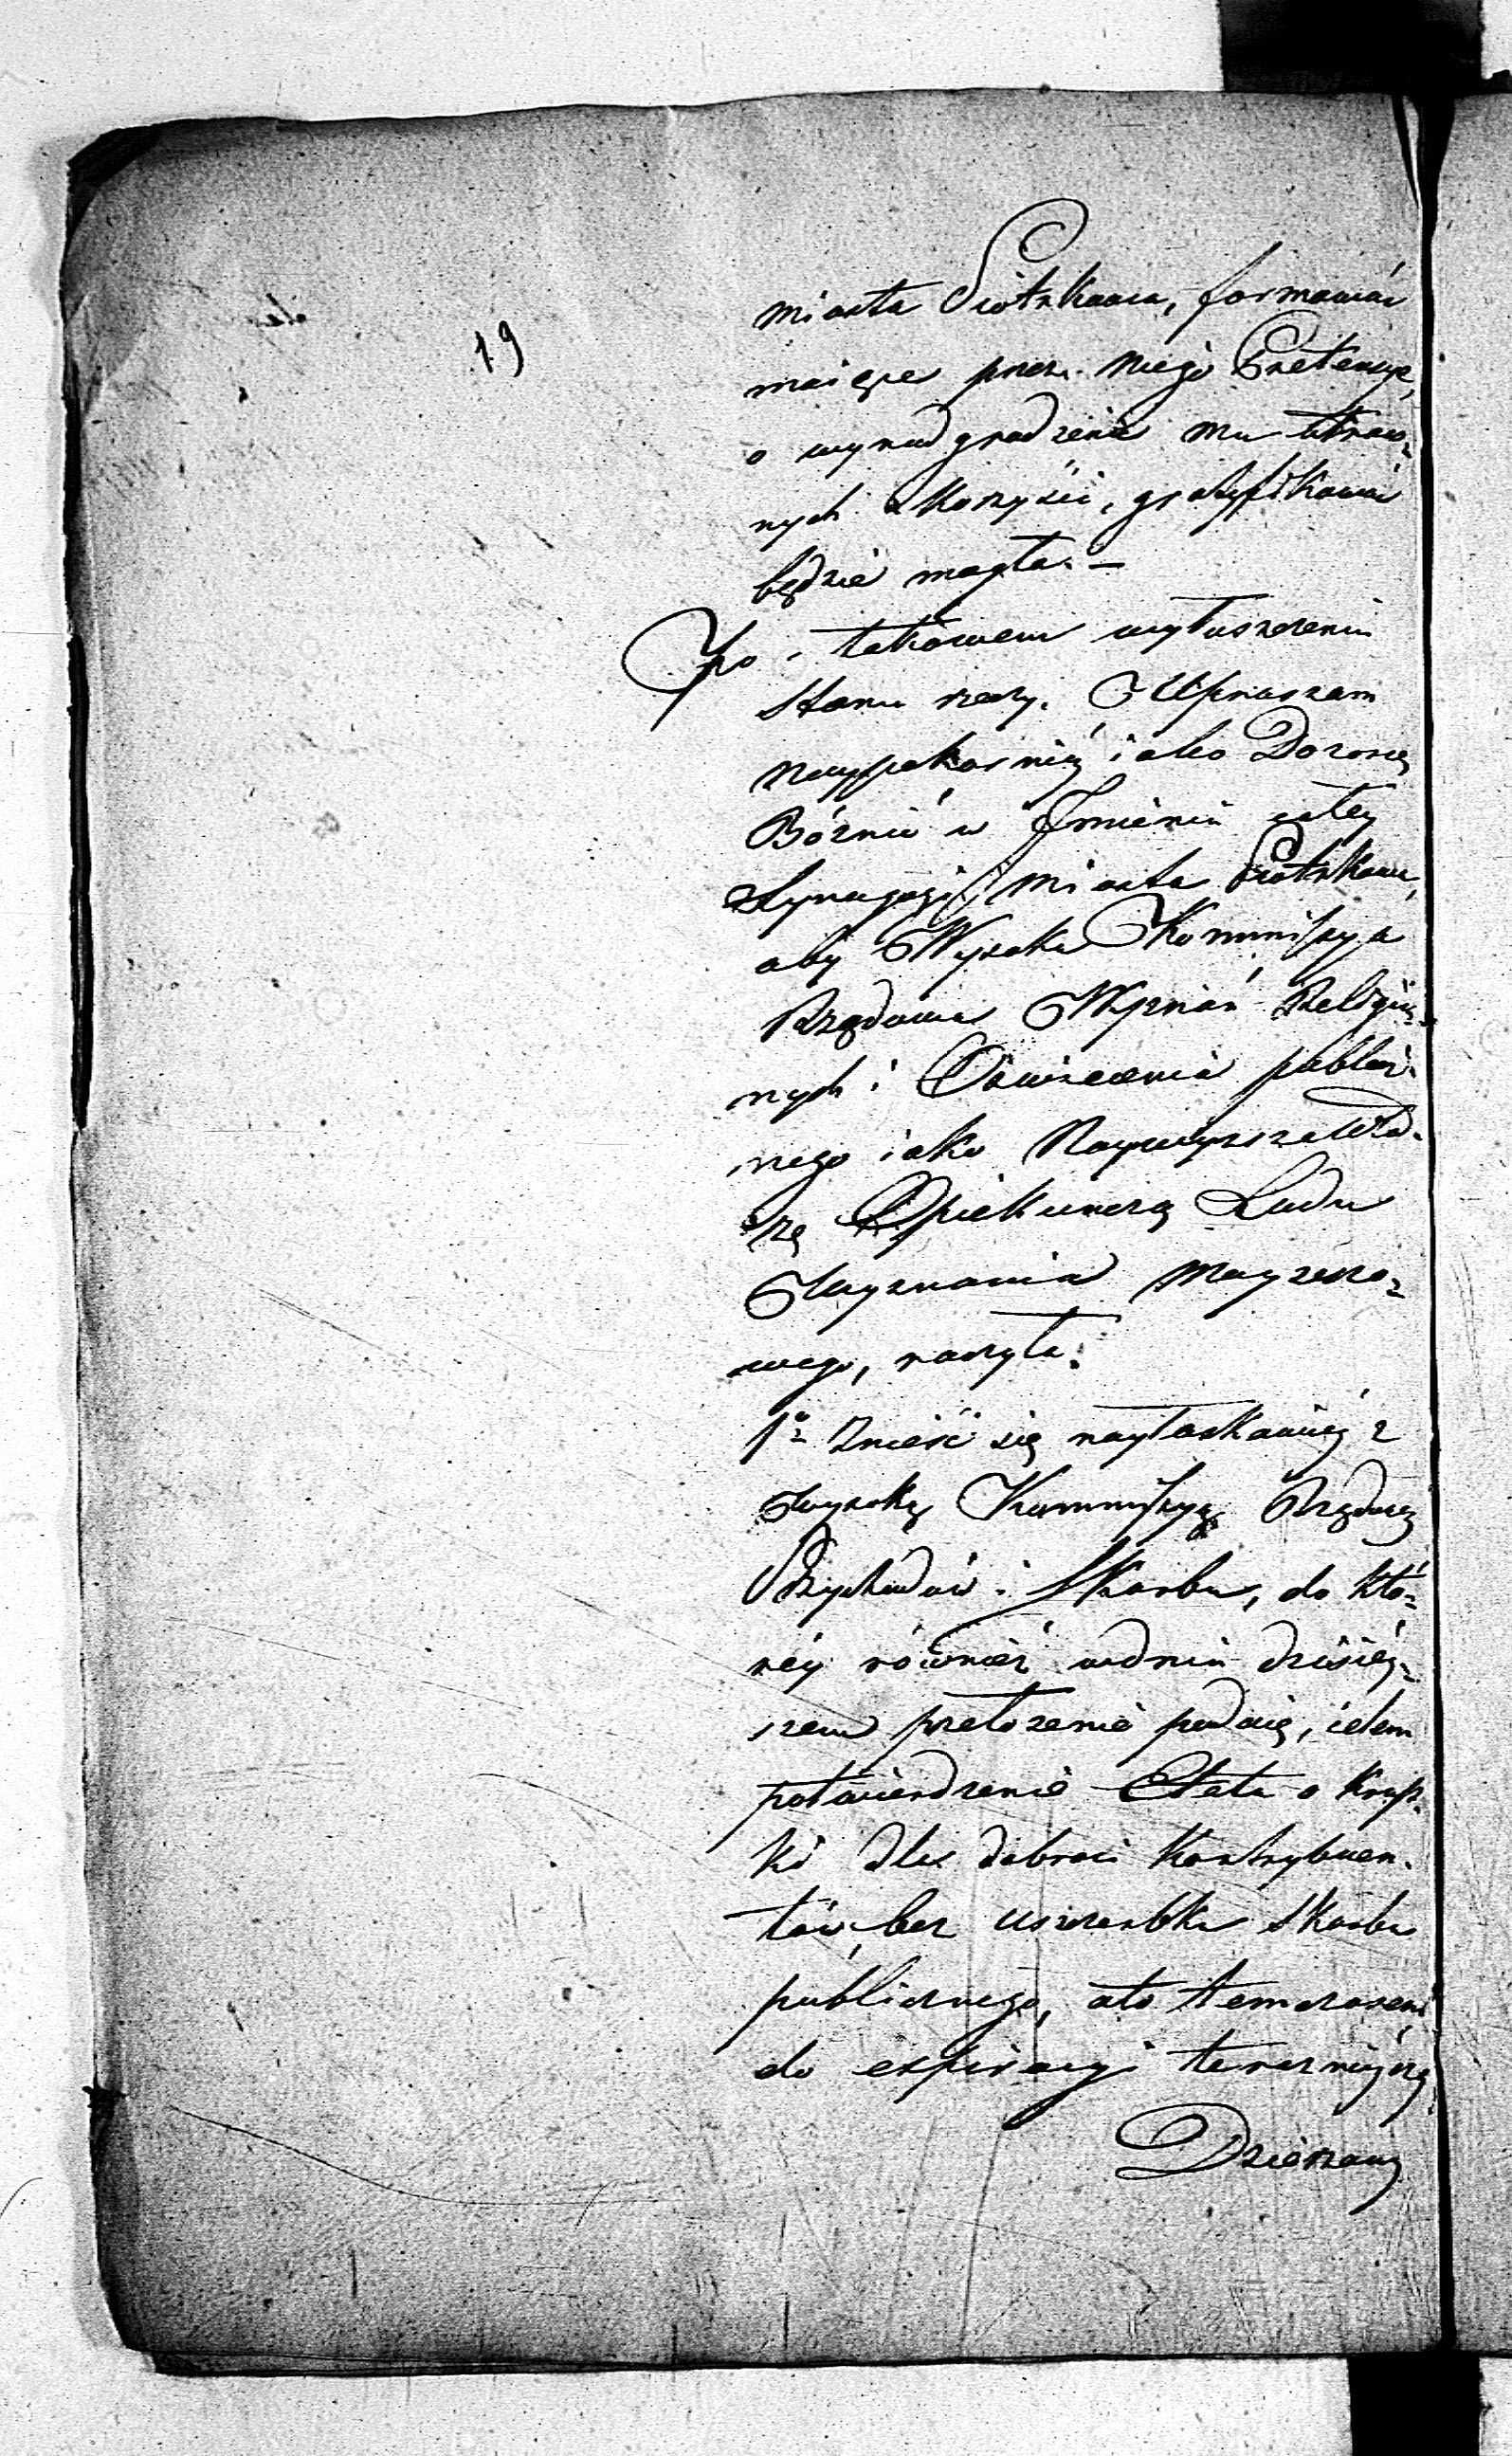 19
miasta Piotrkowa, formować
maiące przez niego Pretensye,
o wynadgrodzenie mu utraco-
nych korzyści, gratyfikować
będzie mogła. —
Po takowem wyłuszczeniu
stanu rzeczy. Upraszam
naypokorniéy iako Dozorca
Bóżnic w Imieniu całey
Synagogi miasta Piotrkowa,
aby Wysoka Kommissya
Rządowa Wyznań Religiy-
nych i Oświecenia publicz-
nego iako Naywyższa Wła-
dza Opiekuncza Ludu
Wyznania Moyżeszo-
wego, raczyła:
1º Znieść się nayłaskawiéy z
Wysoką Kommissyą Rządową
Przychodów i Skarbu, do któ-
réy również w dniu dzisiéy-
szem przełożenie podaię, celem
potwierdzenia Etatu o Krup-
ki dla dobroci Kontrybuen-
tów bez uszczerbku Skarbu
publicznego, a to tem czasem
do expiracyi teraźniéyszéy
Dzierżawy